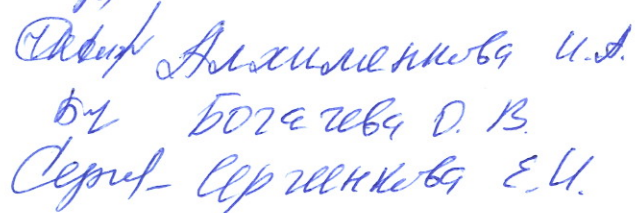 Алхименкова И.А.
Богачева О.В.
Сергеенкова Е.И.